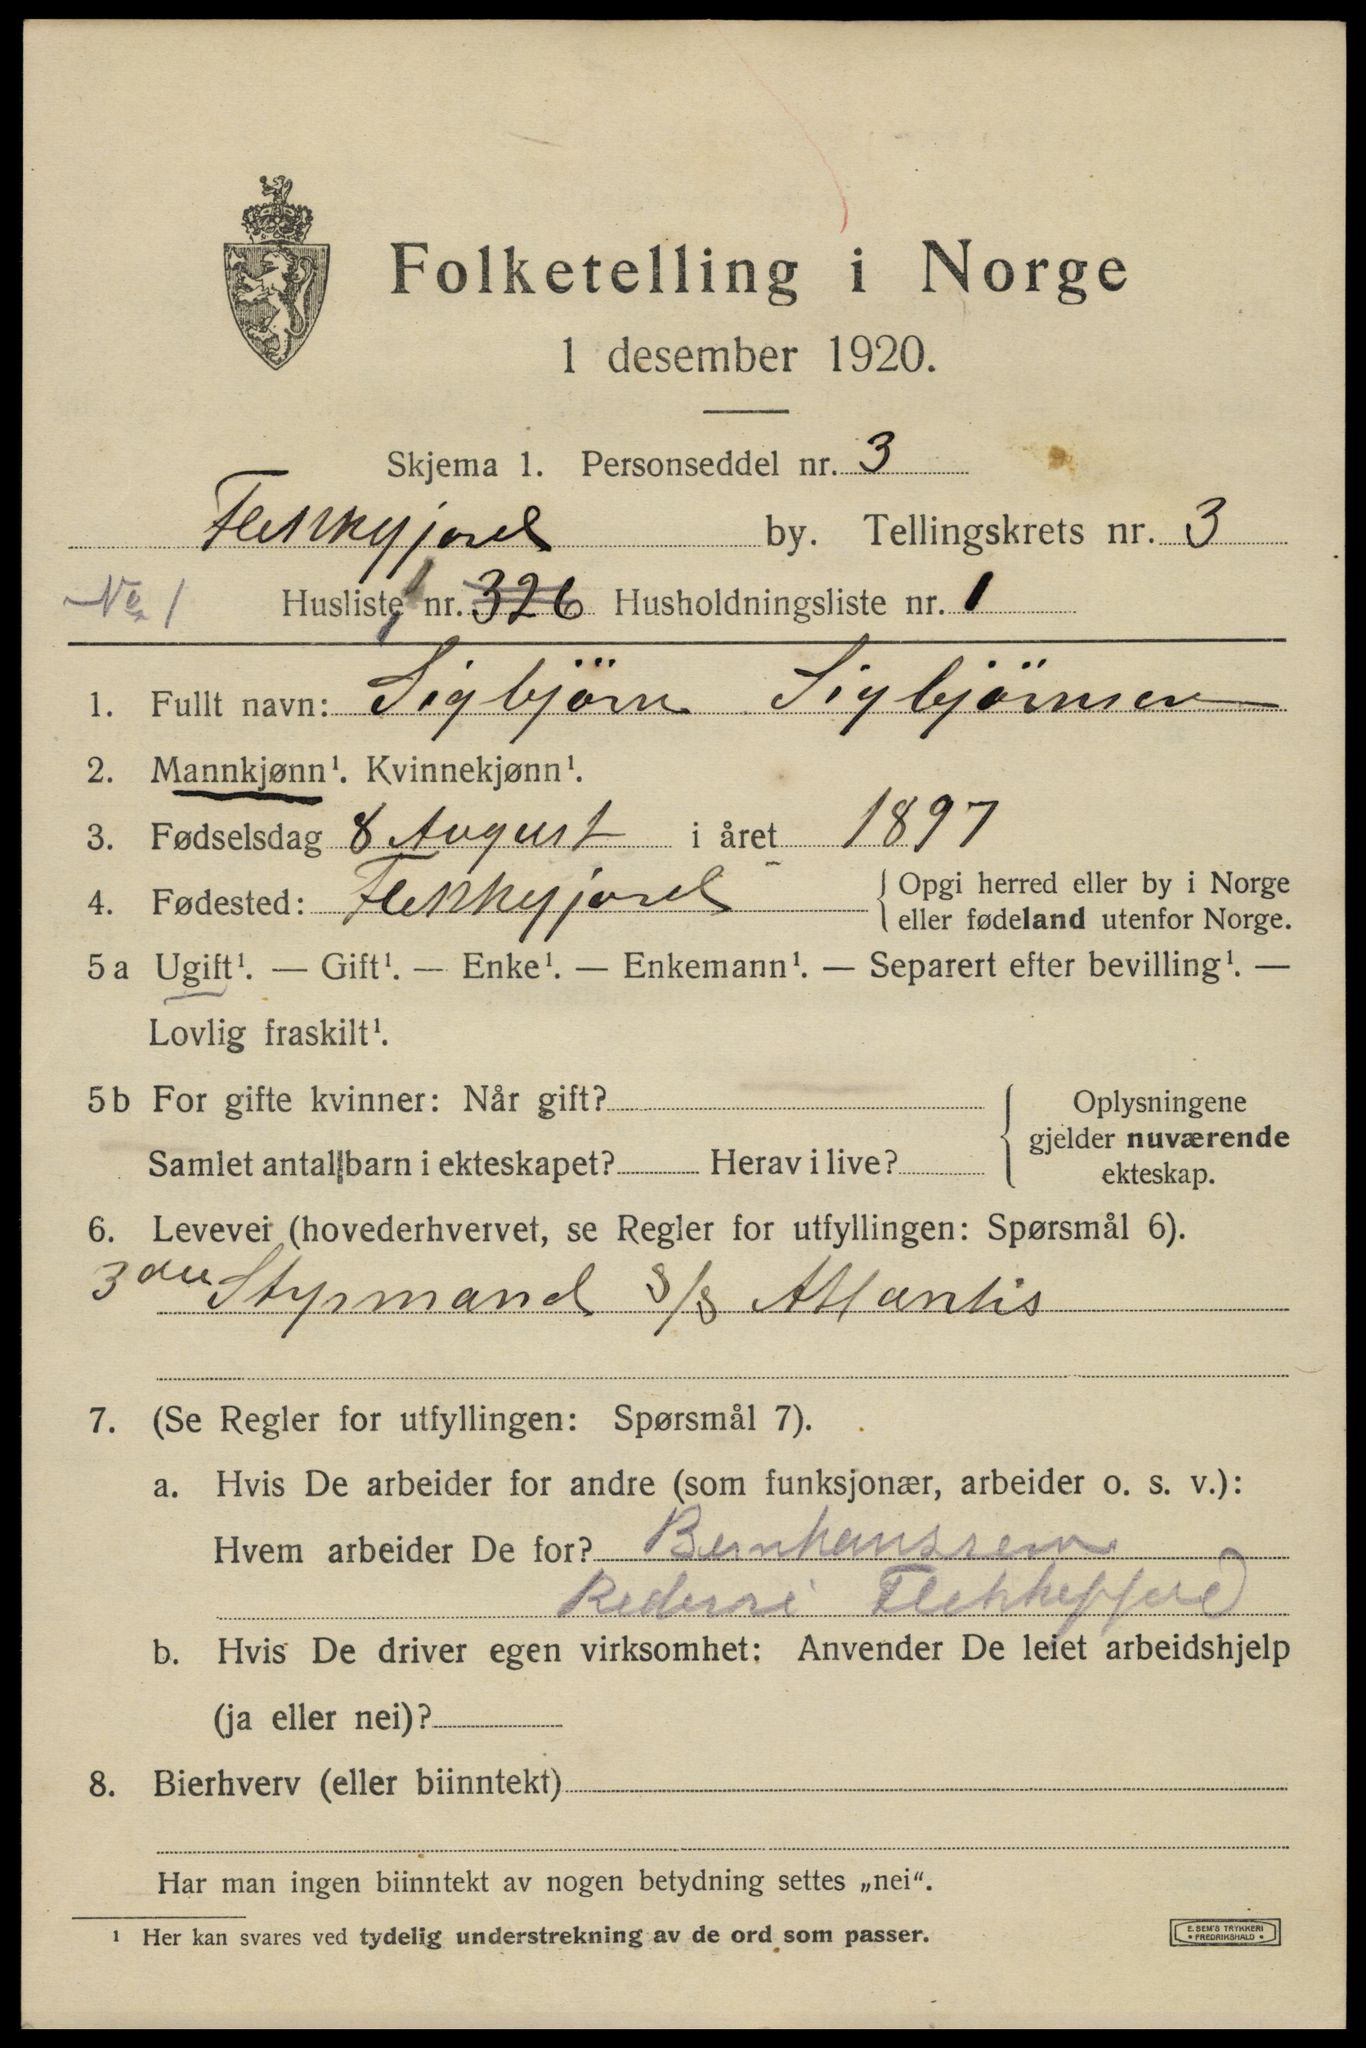 Folketelling i Norge
1 desember 1920.
Skjema 1. Personseddel nr. 3
Flekkefjord by. Tellingskrets nr. 3
No 1 Husliste nr. 326 Husholdningsliste nr. 1
1. Fullt navn: Sigbjörn Sigbjörnsen
2. Mannkjønn¹. Kvinnekjønn¹.
3. Fødselsdag 8 August i året 1897
4. Fødested: Flekkefjord { Opgi herred eller by i Norge
eller fødeland utenfor Norge.
5 a Ugift¹. — Gift¹. — Enke¹. — Enkemann¹. — Separert efter bevilling¹. —
Lovlig fraskilt¹.
5 b For gifte kvinner: Når gift? { Oplysningene
gjelder nuværende
Samlet antall barn i ekteskapet? Herav i live?
ekteskap.
6. Levevei (hovederhvervet, se Regler for utfyllingen: Spørsmål 6).
3die Styrmand S/S Atlantis
7. (Se Regler for utfyllingen: Spørsmål 7).
a. Hvis De arbeider for andre (som funksjonær, arbeider o. s. v.):
Hvem arbeider De for? Bernhanssen
Rederi Flekkefjord
b. Hvis De driver egen virksomhet: Anvender De leiet arbeidshjelp
(ja eller nei)?
8. Bierhverv (eller biinntekt)
Har man ingen biinntekt av nogen betydning settes „nei“.
¹ Her kan svares ved tydelig understrekning av de ord som passer.
E. SEM'S TRYKKERI
FREDRIKSHALD